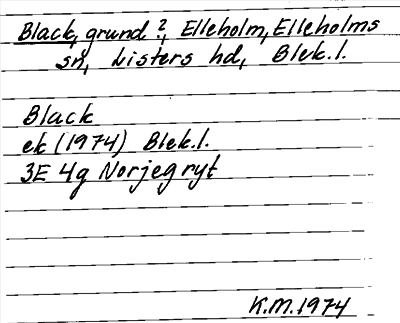 Black, grund ?, Elleholm, Elleholms
sn, Listers hd, Blek.l.
Black
ek (1974) Blek.l.
3E 4g Norjegryt
K.M. 1974